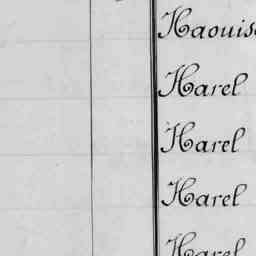 Haouis
Harel
Harel
Harel
Harel